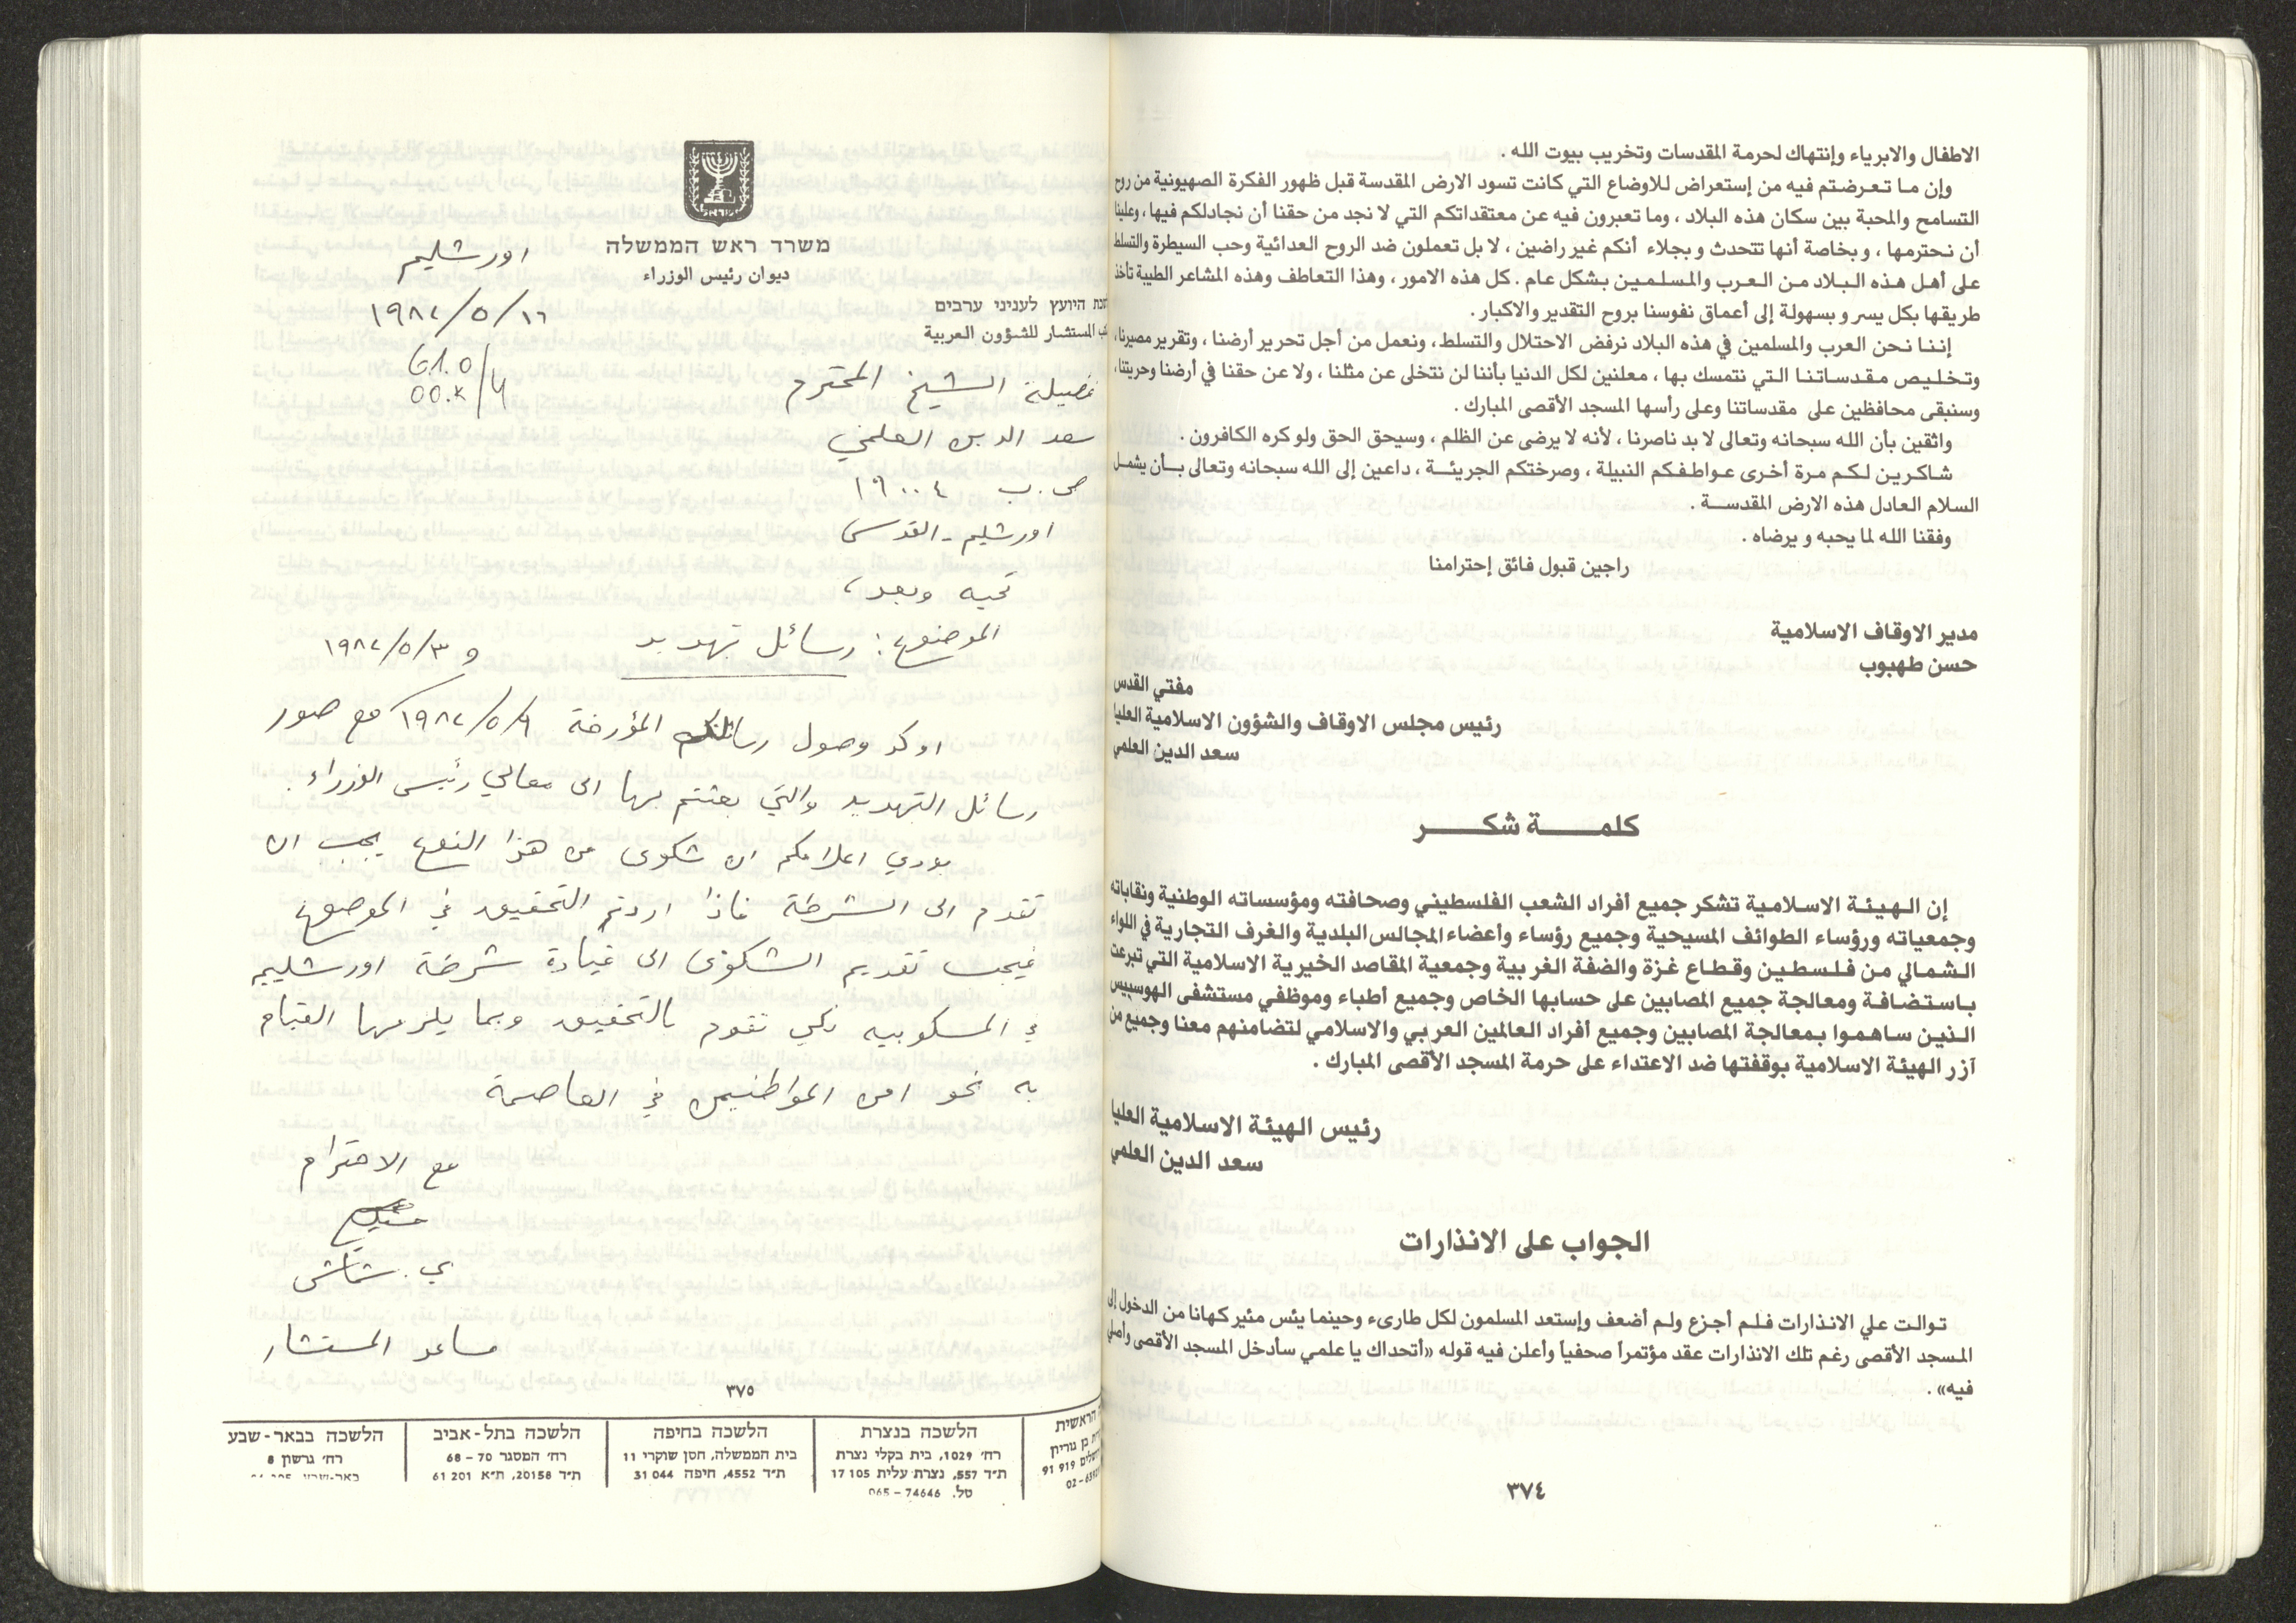 الاطفال والابرياء وإنتهاك لحرمة المقدسات وتخريب بيوت الله .
وإن ما تعرضتم فيه من إستعراض للاوضاع التي كانت تسود الارض المقدسة قبل ظهور الفكرة الصهيونية من روح
التسامح والمحبة بين سكان هذه البلاد ، وما تعبرون فيه عن معتقداتكم التي لا نجد من حقنا أن نجادلكم فيها ، وعلينا
أن نحترمها ، وبخاصة أنها تتحدث وبجلاء أنكم غير راضين ، لا بل تعملون ضد الروح العدائية وحب السيطرة والتسلط
على أهل هذه البلاد من العرب والمسلمين بشكل عام . كل هذه الامور ، وهذا التعاطف وهذه المشاعر الطيبة تأخذ
طريقها بكل يسر وبسهولة إلى أعماق نفوسنا بروح التقدير والاكبار .
إننا نحن العرب والمسلمين في هذه البلاد نرفض الاحتلال والتسلط ، ونعمل من أجل تحرير أرضنا ، وتقرير مصيرنا ،
وتخليص مقدساتنا التي نتمسك بها ، معلنين لكل الدنيا بأننا لن نتخلى عن مثلنا ، ولا عن حقنا في أرضنا وحريتنا ،
وسنبقى محافظين على مقدساتنا وعلى رأسها المسجد الأقصى المبارك .
واثقين بأن الله سبحانه وتعالى لا بد ناصرنا ، لأنه لا يرضى عن الظلم ، وسيحق الحق ولو كره الكافرون .
شاكرين لكم مرة أخرى عواطفكم النبيلة ، وصرختكم الجريئة ، داعين إلى الله سبحانه وتعالى بأن يشمل
السلام العادل هذه الارض المقدسة .
وفقنا الله لما يحبه ويرضاه .
راجين قبول فائق إحترامنا
مدير الاوقاف الاسلامية
حسن طهبوب
مفتي القدس
رئيس مجلس الاوقاف والشؤون الاسلامية العليا
سعد الدين العلمي
كلمة شكر
إن الهيئة الاسلامية تشكر جميع أفراد الشعب الفلسطيني وصحافته ومؤسساته الوطنية ونقاباته
وجمعياته ورؤساء الطوائف المسيحية وجميع رؤساء وأعضاء المجالس البلدية والغرف التجارية في اللواء
الشمالي من فلسطين وقطاع غزة والضفة الغربية وجمعية المقاصد الخيرية الاسلامية التي تبرعت
باستضافة ومعالجة جميع المصابين على حسابها الخاص وجميع أطباء وموظفي مستشفى الهوسبيس
الذين ساهموا بمعالجة المصابين وجميع أفراد العالمين العربي والاسلامي لتضامنهم معنا وجميع من
آزر الهيئة الاسلامية بوقفتها ضد الاعتداء على حرمة المسجد الأقصى المبارك .
رئيس الهيئة الاسلامية العليا
سعد الدين العلمي
الجواب على الانذارات
توالت علي الانذارات فلم أجزع ولم أضعف وإستعد المسلمون لكل طارىء وحينما يئس مئير كهانا من الدخول إلى
المسجد الأقصى رغم تلك الانذارات عقد مؤتمراً صحفياً وأعلن فيه قوله «أتحداك يا علمي سأدخل المسجد الأقصى وأصلي
فيه» .
٣٧٤
משרד ראש הממשלה
ديوان رئيس الوزراء
היועץ לעניני ערבים
المستشار للشؤون العربية
اورشليم
١٩٨٢/٥/١٦
فضيلة الشيخ المحترم
سعد الدين العلمي
ص.ب ١٩٠٠٤
اورشليم - القدس
تحيه وبعد ،
الموضوع : رسائل تهديد
و ١٩٨٢/٥/٣
اوكد وصول رسائلكم المؤرخة ١٩٨٢/٥/٩ مع صور
رسائل التهديد والتي بعثتم بها الى معالي رئيس الوزراء.
بودي اعلامكم ان شكوى من هذا النوع يجب ان
تقدم الى الشرطة فاذا اردتم التحقيق في الموضوع
فيجب تقديم الشكوى الى قيادة شرطة اورشليم
في المسكوبيه لكي تقوم بالتحقيق وبما يلزمها القيام
به نحو امن المواطنين في العاصمة
مع الاحترام
ي. شماش
مساعد المستشار
٣٧٥
הראשית
בן גוריון
91 919
הלשכה בנצרת
רח׳ 1029, בית בקלי נצרת
ת״ד 557, נצרת עלית 105 17
טל. 74646 – 065
הלשכה בחיפה
בית הממשלה, חסן שוקרי 11
ת״ד 4552, חיפה 044 31
הלשכה בתל-אביב
רח׳ המסגר 70 – 68
ת״ד 20158, ת״א 201 61
הלשכה בבאר-שבע
רח׳ גרשון 8